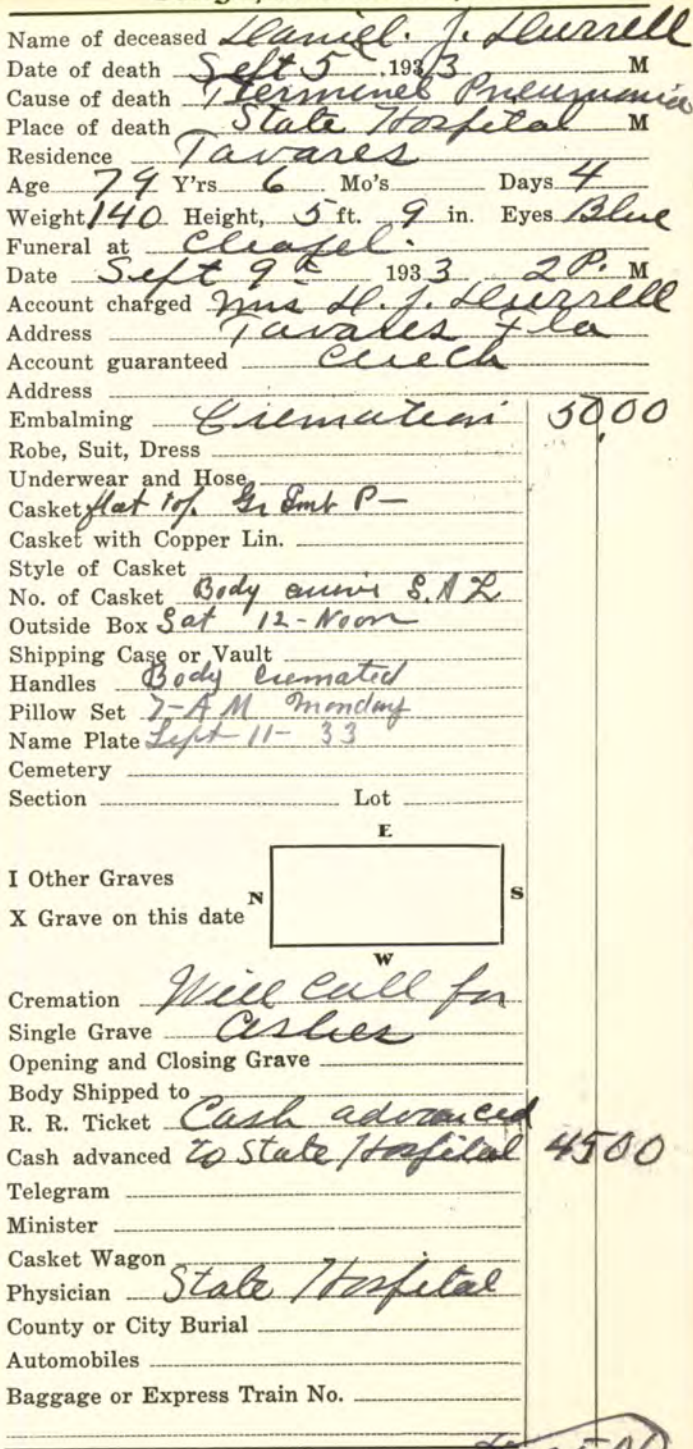 Name of deceased Daniel. J. Durrell
Date of death Sept 5 , 1933 M
Cause of death Terminel Pneumonia
Place of death State Hospital M
Residence Tavares
Age 79 Y'rs 6 Mo's Days 4
Weight 140 Height, 5 ft. 9 in. Eyes Blue
Funeral at Chapel.
Date Sept 9 1933 2 P. M
Account charged Mrs D. J. Durrell
Address Tavares Fla
Account guaranteed
Address
Embalming Cremation 50,00
Robe, Suit, Dress
Underwear and Hose
Casket flat top. Gr Emb P-
Casket with Copper Lin.
Style of Casket
No. of Casket Body arrive S.A L
Outside Box Sat 12-Noon
Shipping Case or Vault
Handles Body Cremated
Pillow Set 7-A M Monday
Name Plate Sept 11- 33
Cemetery
Section Lot
E
I Other Graves
N S
X Grave on this date
W
Cremation Will Call for
Single Grave ashes
Opening and Closing Grave
Body Shipped to
R. R. Ticket Cash advanced
Cash advanced to State Hospital 4500
Telegram
Minister
Casket Wagon
Physician State Hospital
County or City Burial
Automobiles
Baggage or Express Train No.